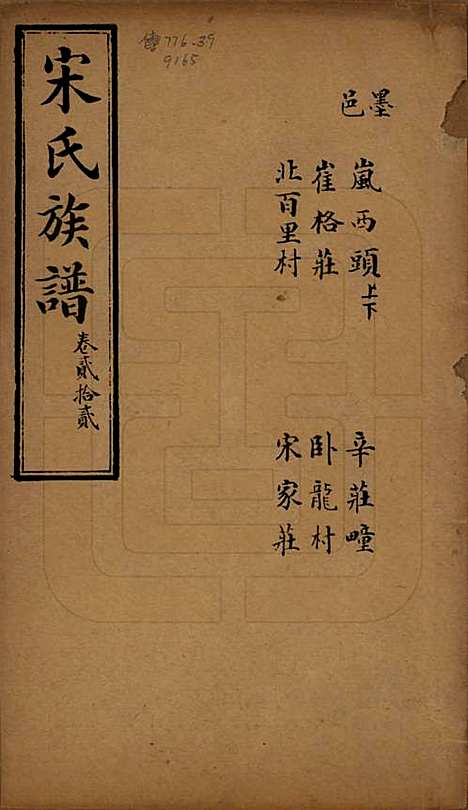 傳776.39
9165
墨邑
嵐西頭上下
崔格莊
北百里村
辛莊疃
卧龍村
宋家莊
宋氏族譜
卷貳拾貳